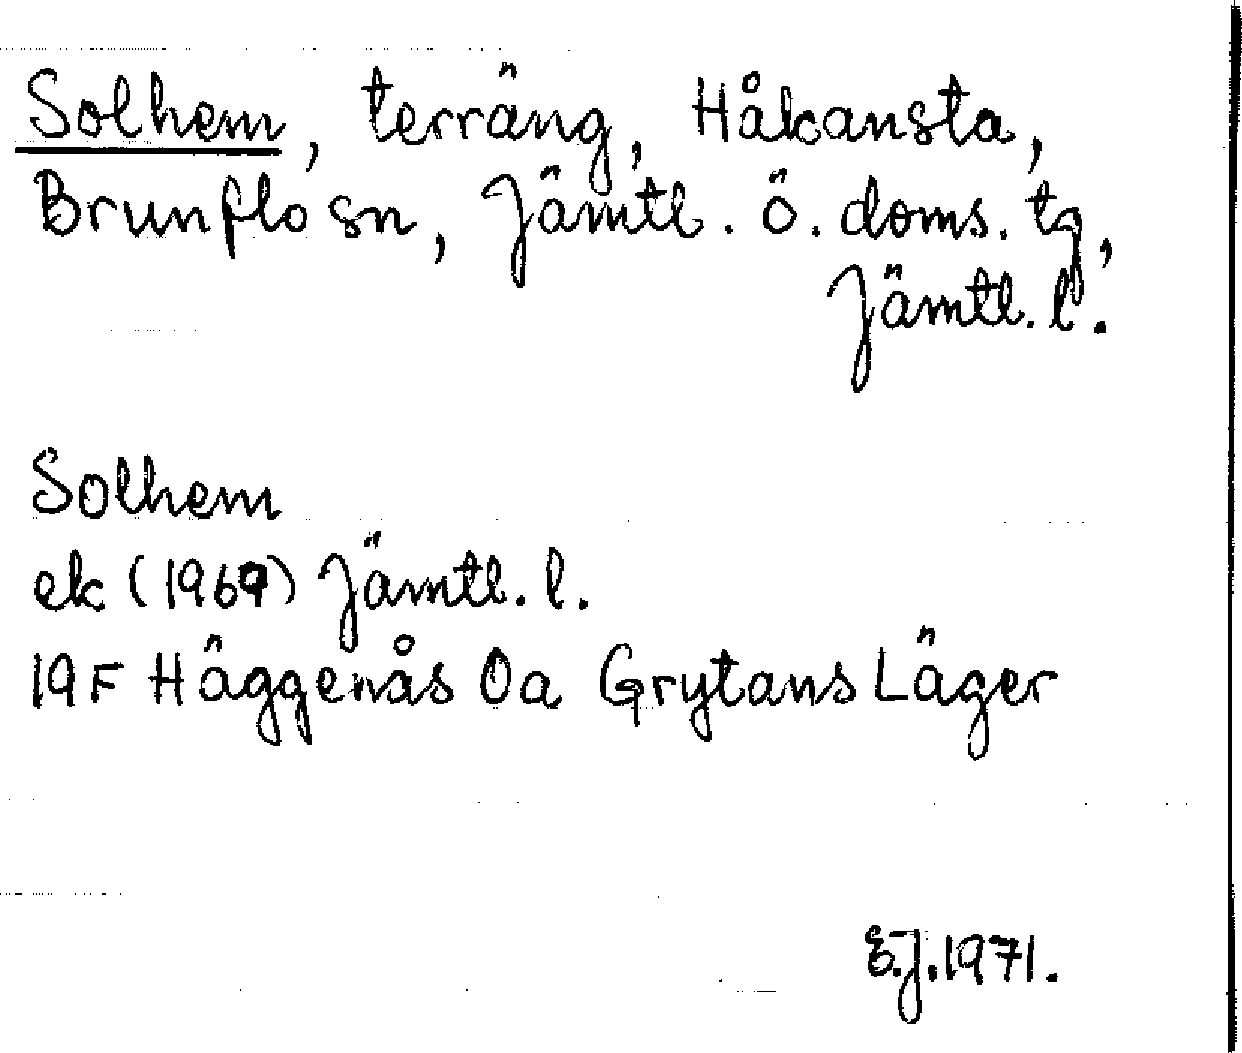 Solhem, terräng, Håkansta,
Brunflo sn, Jämtl. ö. doms. tg,
Jämtl. l.
Solhem
ek (1969) Jämtl. l.
19F Häggenås 0a Grytans Läger
E.J. 1971.